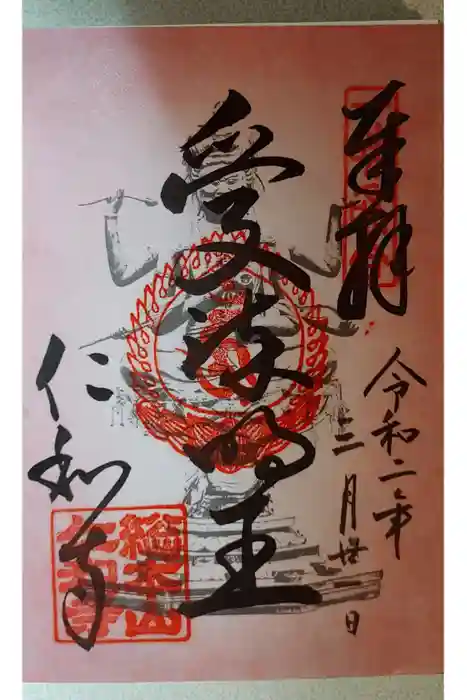 奉拝
令和二年
三月廿日
愛染明王
仁和寺
総本山
仁和寺